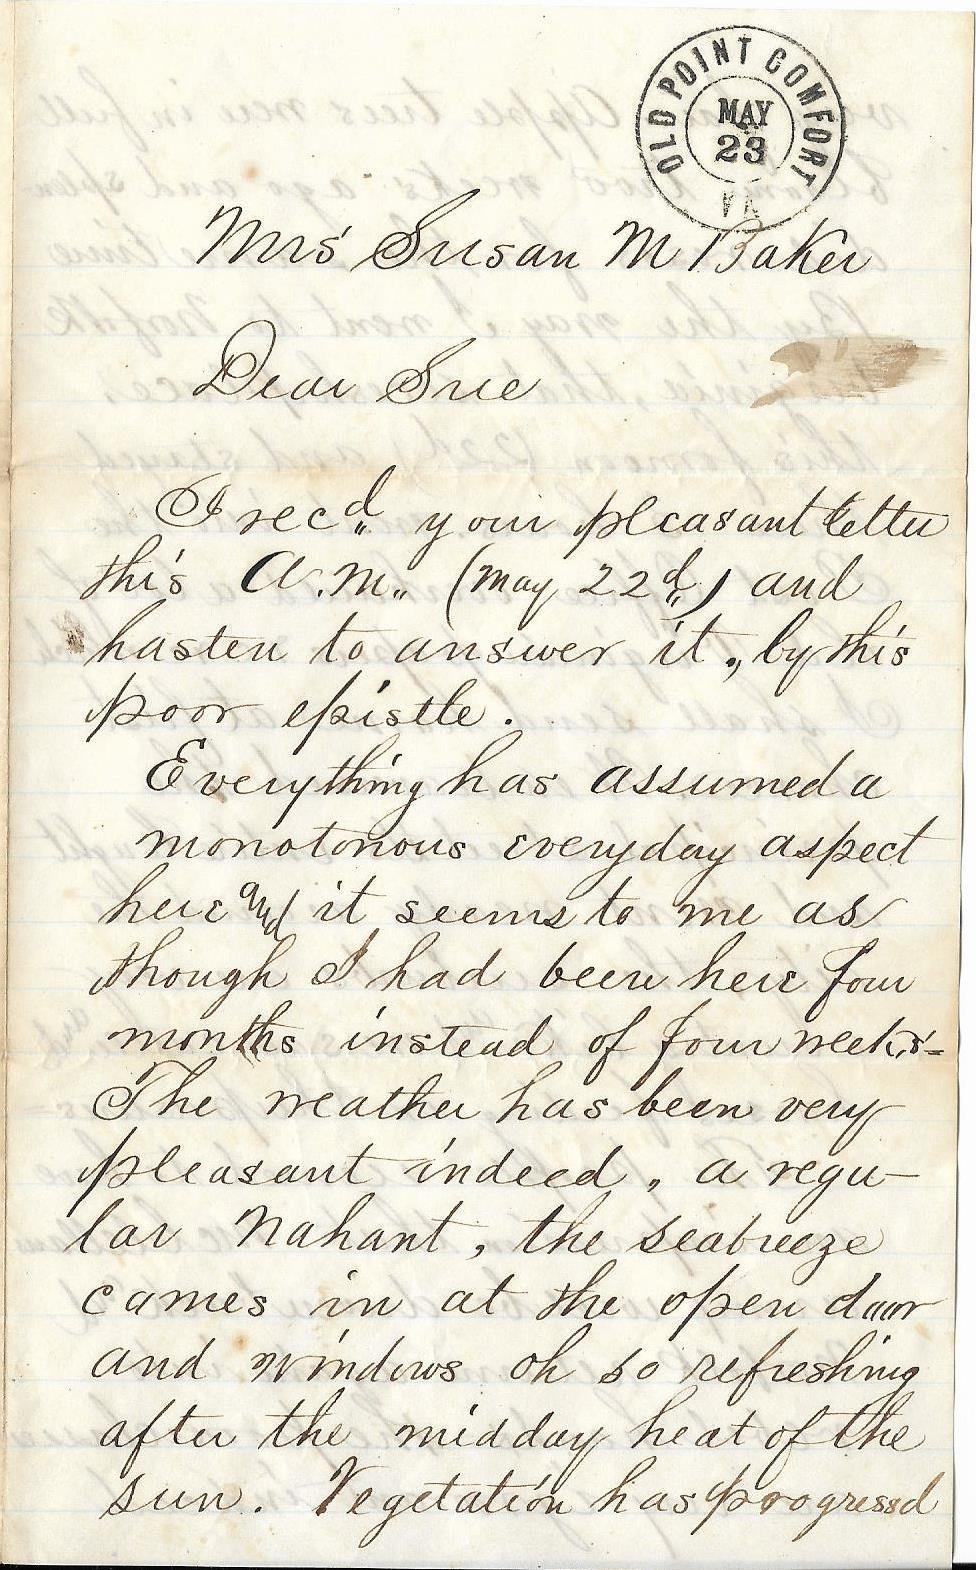 OLD POINT COMFORT
MAY
23
VA
Mrs Susan M Baker
Dear Sue
I recd. your pleasant letter
this A.M. (May 22d.) and
hasten to answer it., by this
poor epistle.
Everything has assumed a
monotonous everyday aspect
here and it seems to me as
though I had been here four
months instead of four weeks-
The weather has been very
pleasant indeed, a regu-
lar Nahant, the seabreeze
comes in at the open door
and windows oh so refreshing
after the midday heat of the
sun. Vegetation has progressd